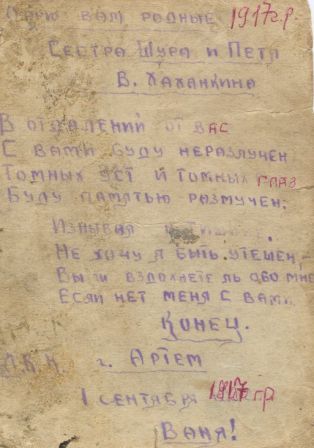 Дарю вам родные 1917г.р.
Сестра Шура и Петя
В. Хаханкина
В отдалении от вас
С вами буду неразлучен
Томных уст и томных глаз
Буду памятью размучен:
Изнывая в тишине
Не хочу я быть утешен,-
Вы ж вздохнете ль обо мне
Если нет меня с вами
Конец.
г. Артем
1 сентября 1917 гр
Ваня!